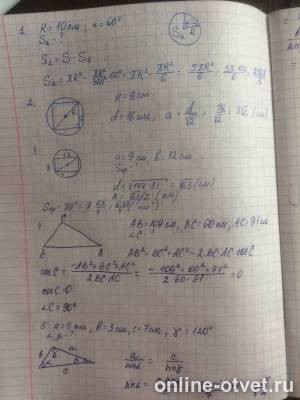 1. R = 10 см, α = 60°
S₂ - ?
S₂ = S - S₁
S₂ = πR² - πR²/360 · 60° = πR² - πR²/6 = 5πR²/6 =
2. R = 8 см
d = 16 см, a = d/√2 = 16/√2 =
3. a = 9 см, b = 12 см
d = √144-81 = √63 (см)
R = √63/2 (см)
4. AB = 109 см, BC = 60 см, AC = 91 см
∠C - ?
AB² = BC² + AC² - 2BC·AC·cosC
cosC = -AB²+BC²+AC² / 2BC·AC = -109²+60²+91² / 2·60·91 = 0
cosC = 0
∠C = 90°
5. a = 5 см, b = 3 см, c = 7 см, γ = 120°
a/sinα = c/sinγ
sinα =
online-otvet.ru